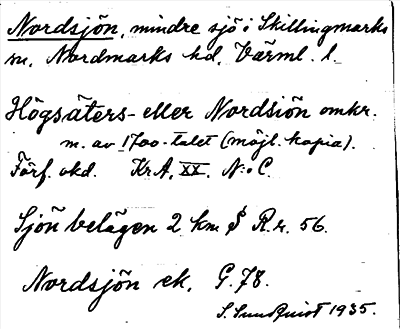 Nordsjön, mindre sjö i Skillingmarks
sn, Nordmarks hd, Värml. l.
Högsäters- eller Nordsiön omkr.
m. av 1700-talet (möjl. kopia).
Förf. okd. KrA, XX. N:o C.
Sjön belägen 2 km S R.r. 56.
Nordsjön ek. G.78.
S. Sundquist 1935.